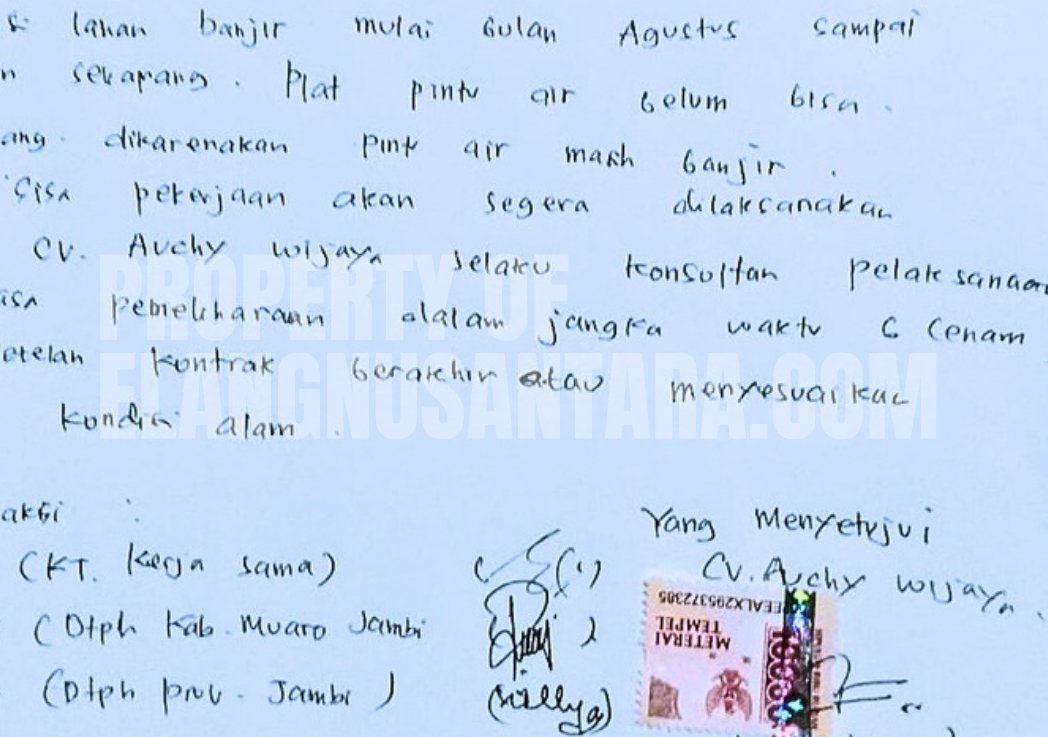 lahan banjir mulai bulan Agustus sampai
n sekarang. Plat pintu air belum bisa.
ang. dikarenakan pint air masih banjir.
Sisa pekerjaan akan segera dilaksanakan
CV. Auchy wijaya selaku konsultan pelaksanaan
isa pemeliharaan dalam jangka waktu 6 (enam
etelah kontrak berakhir atau menyesuaikan
kondisi alam.
PROPERTY OF
ELANGNUSANTARA.COM
aksi :
Yang Menyetujui
(KT. Kerja sama)
CV. Auchy wijaya.
(Dtph Kab. Muaro Jambi
(Dtph prov. Jambi)
(Willya)
EALX295372385
METERAI
TEMPEL
10000